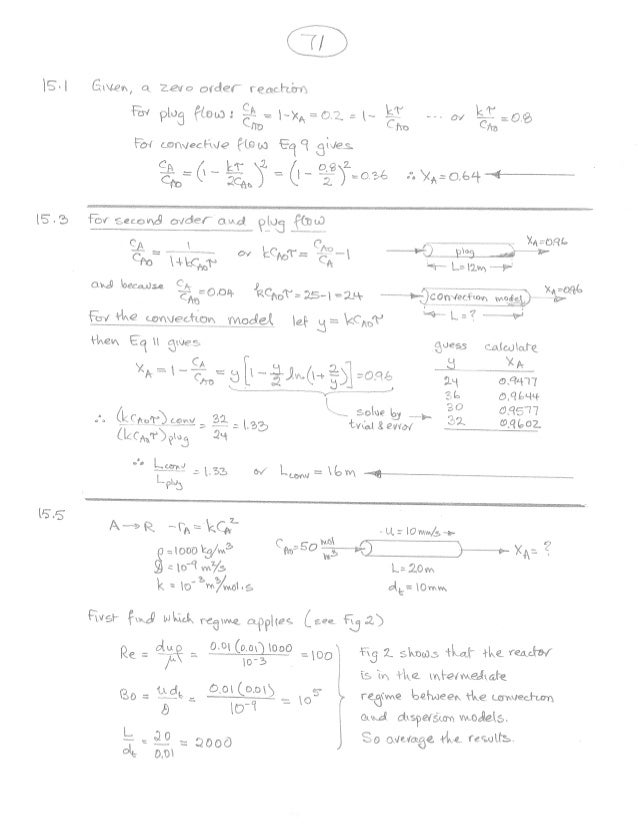 71
15.1 Given, a zero order reaction
For plug flow: CA/CA0 = 1-XA = 0.2 = 1- kτ/CA0 ... or kτ/CA0 = 0.8
For convective flow Eq 9 gives
CA/CA0 = (1 - kτ/2CA0)² = (1 - 0.8/2)² = 0.36 ∴ XA = 0.64
15.3 For second order and plug flow
CA/CA0 = 1/(1+kCA0τ) or kCA0τ = CA0/CA - 1
plug XA=0.96
L=12m
and because CA/CA0 = 0.04 kCA0τ = 25-1 = 24
convection model XA=0.96
L=?
For the convection model let y = kCA0τ
then Eq 11 gives
XA = 1 - CA/CA0 = y[1 - y/2 ln(1 + 2/y)] = 0.96
solve by trial & error
guess calculate
y XA
24 0.9477
36 0.9644
30 0.9577
32 0.9602
∴ (kCA0τ)conv/(kCA0τ)plug = 32/24 = 1.33
∴ Lconv/Lplug = 1.33 or Lconv = 16m
15.5
A → R -rA = kCA²
ρ = 1000 kg/m³
𝒟 = 10⁻⁹ m²/s
k = 10⁻³ m³/mol·s
CA0=50 mol/m³
u = 10mm/s
XA = ?
L=20m
dt = 10mm
First find which regime applies (see Fig 2)
Re = duρ/μ = 0.01(0.01)1000/10⁻³ = 100
Bo = udt/𝒟 = 0.01(0.01)/10⁻⁹ = 10⁵
L/dt = 20/0.01 = 2000
Fig 2 shows that the reactor
is in the intermediate
regime between the convection
and dispersion models.
So average the results.